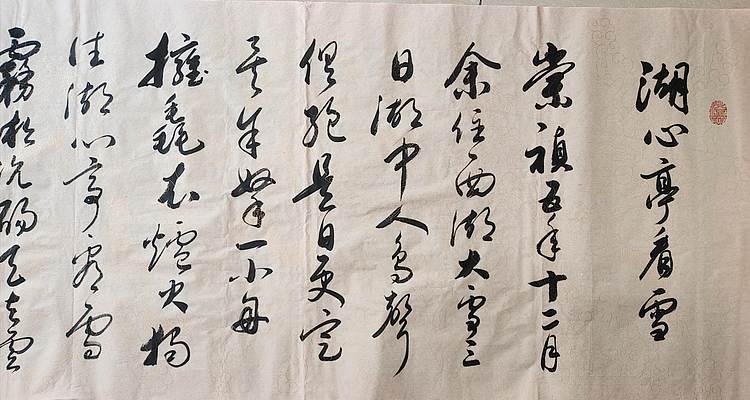 湖心亭看雪
崇禎五年十二月
余住西湖大雪三
日湖中人鳥聲
俱絕是日更定
矣余拏一小舟
擁毳衣爐火獨
往湖心亭看雪
霧凇沆碭天与雲